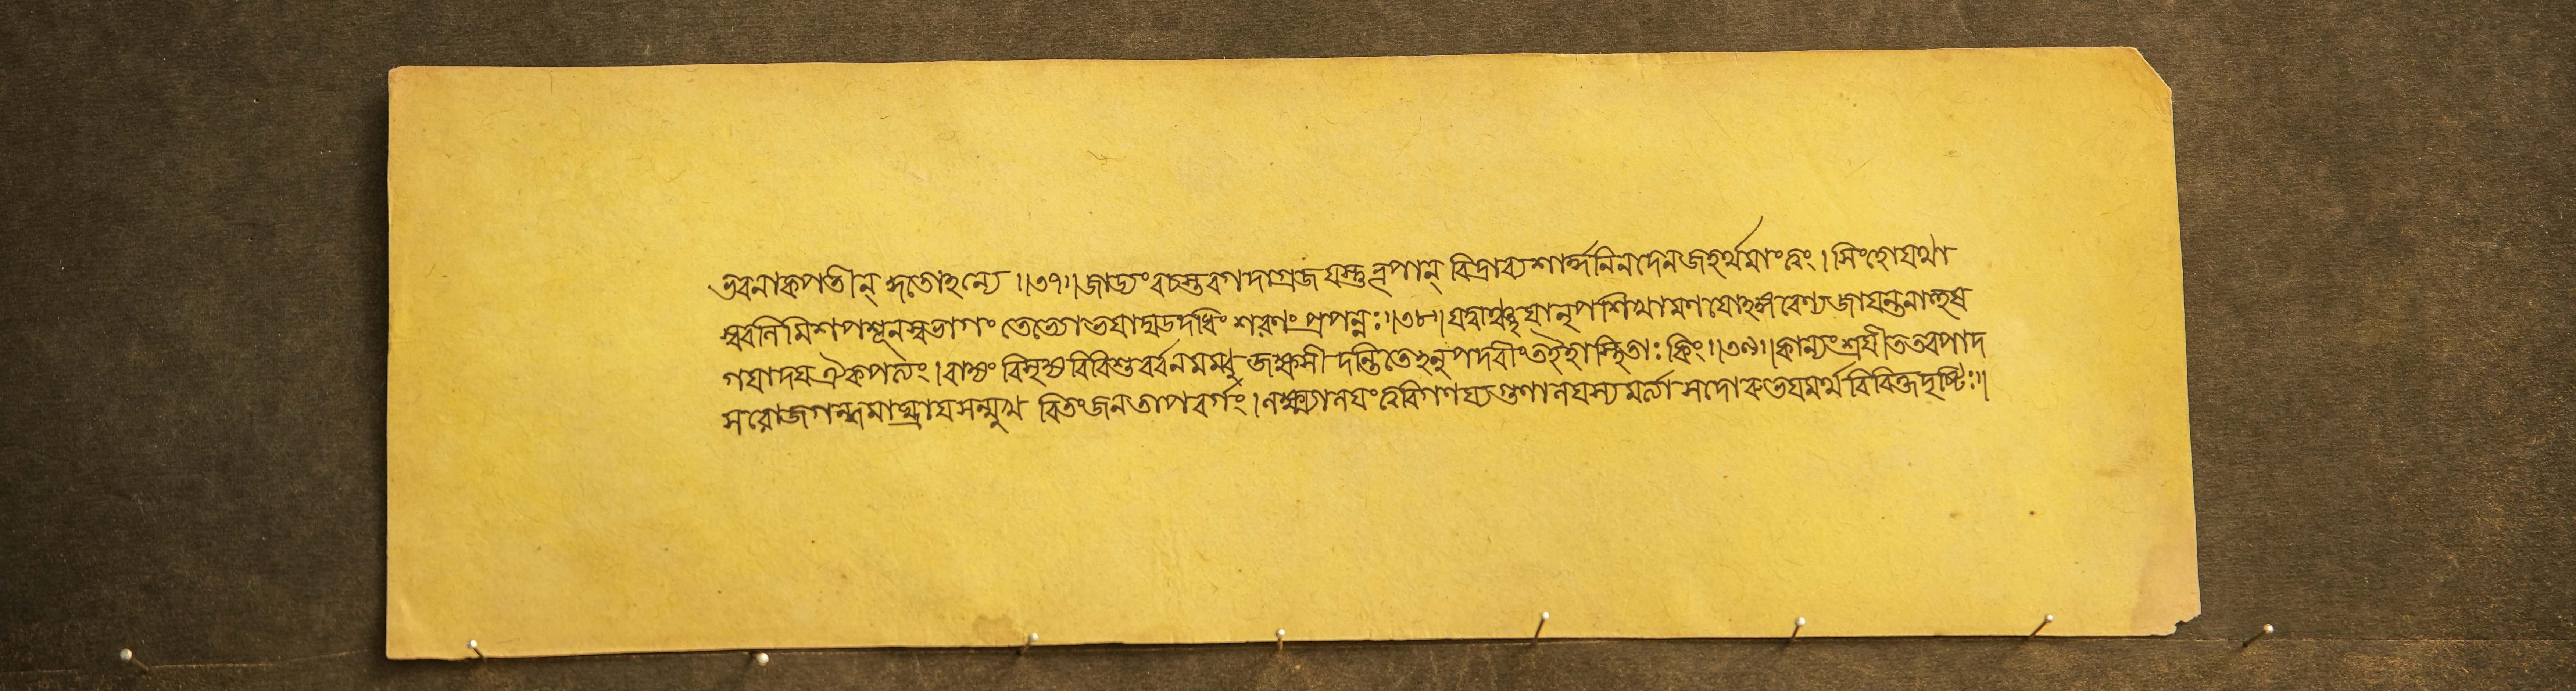 ভবনাকপতীন্ কুতোঽন্যে ॥৩৭॥ জাড্যং বচস্তবগদাগ্রজযস্তুভূপান্ বিদ্রাব্যশার্ঙ্গনিনদেনজহর্থমাংত্বং। সিংহোযথা
স্ববলিমিশপশূনস্বভাগং তেভ্যোভযাদ্যদুদধিং শরণং প্রপন্নঃ॥৩৮॥ যদ্বাঞ্ছযানৃপশিখামণযোঽঙ্গবেণ্যজাযন্তনাহুষ
গযাদয ঐকপত্যং। রাজ্যং বিসৃজ্য বিবিশুর্বনমম্বুজাক্ষসীদন্তিতেঽনুপদবীংতইহাস্থিতাঃ কিং॥৩৯॥ কান্যংশ্রযীততবপাদ
সরোজগন্ধমাঘ্রাযসন্মুখরিতংজনতাপবর্গং। লক্ষ্ম্যালযংত্ববিগণয্যগুণালযস্যমর্ত্যাসদোরুভযমর্থবিবিক্তদৃষ্টিঃ॥